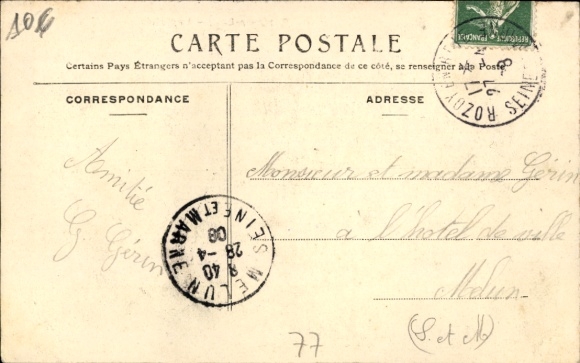 10€
REPUBLIQUE FRANÇAISE
CARTE POSTALE
Certains Pays Étrangers n'acceptant pas la Correspondance de ce côté, se renseigner à la Poste
CORRESPONDANCE
ADRESSE
ROZOY SEINE
17
27 -4
8
Amitié
G Gérin
MELUN SEINE ET MARNE
8 40
28 -4
08
Monsieur et madame Gérin
à l'hotel de ville
Melun
(S. et M)
77